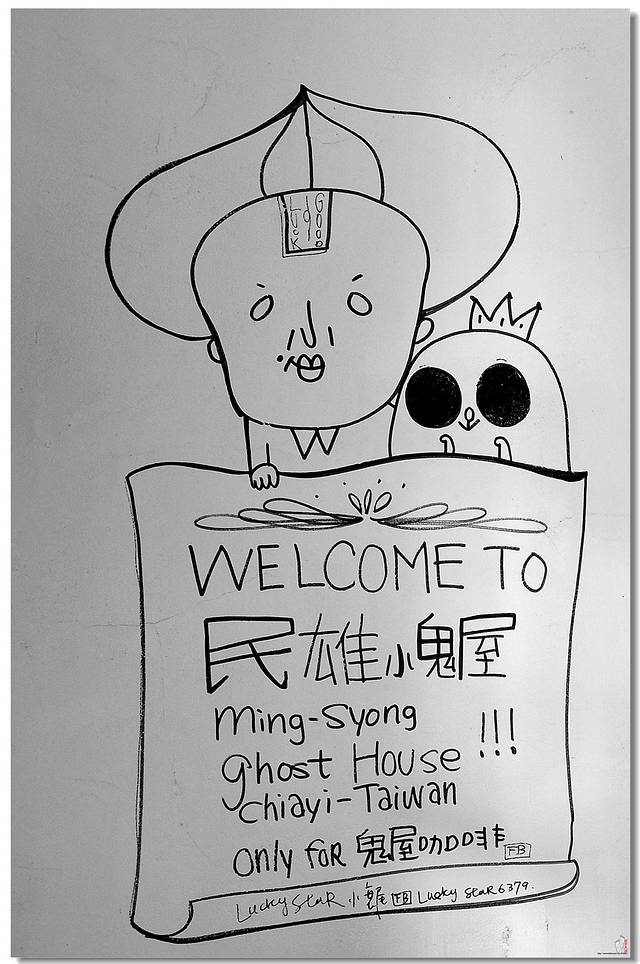 LUCK GOOD
WELCOME TO
民雄小鬼屋
Ming-Syong
Ghost House !!!
Chiayi-Taiwan
Only for 鬼屋咖啡 FB
Lucky Star 小雞 Lucky Star6379.